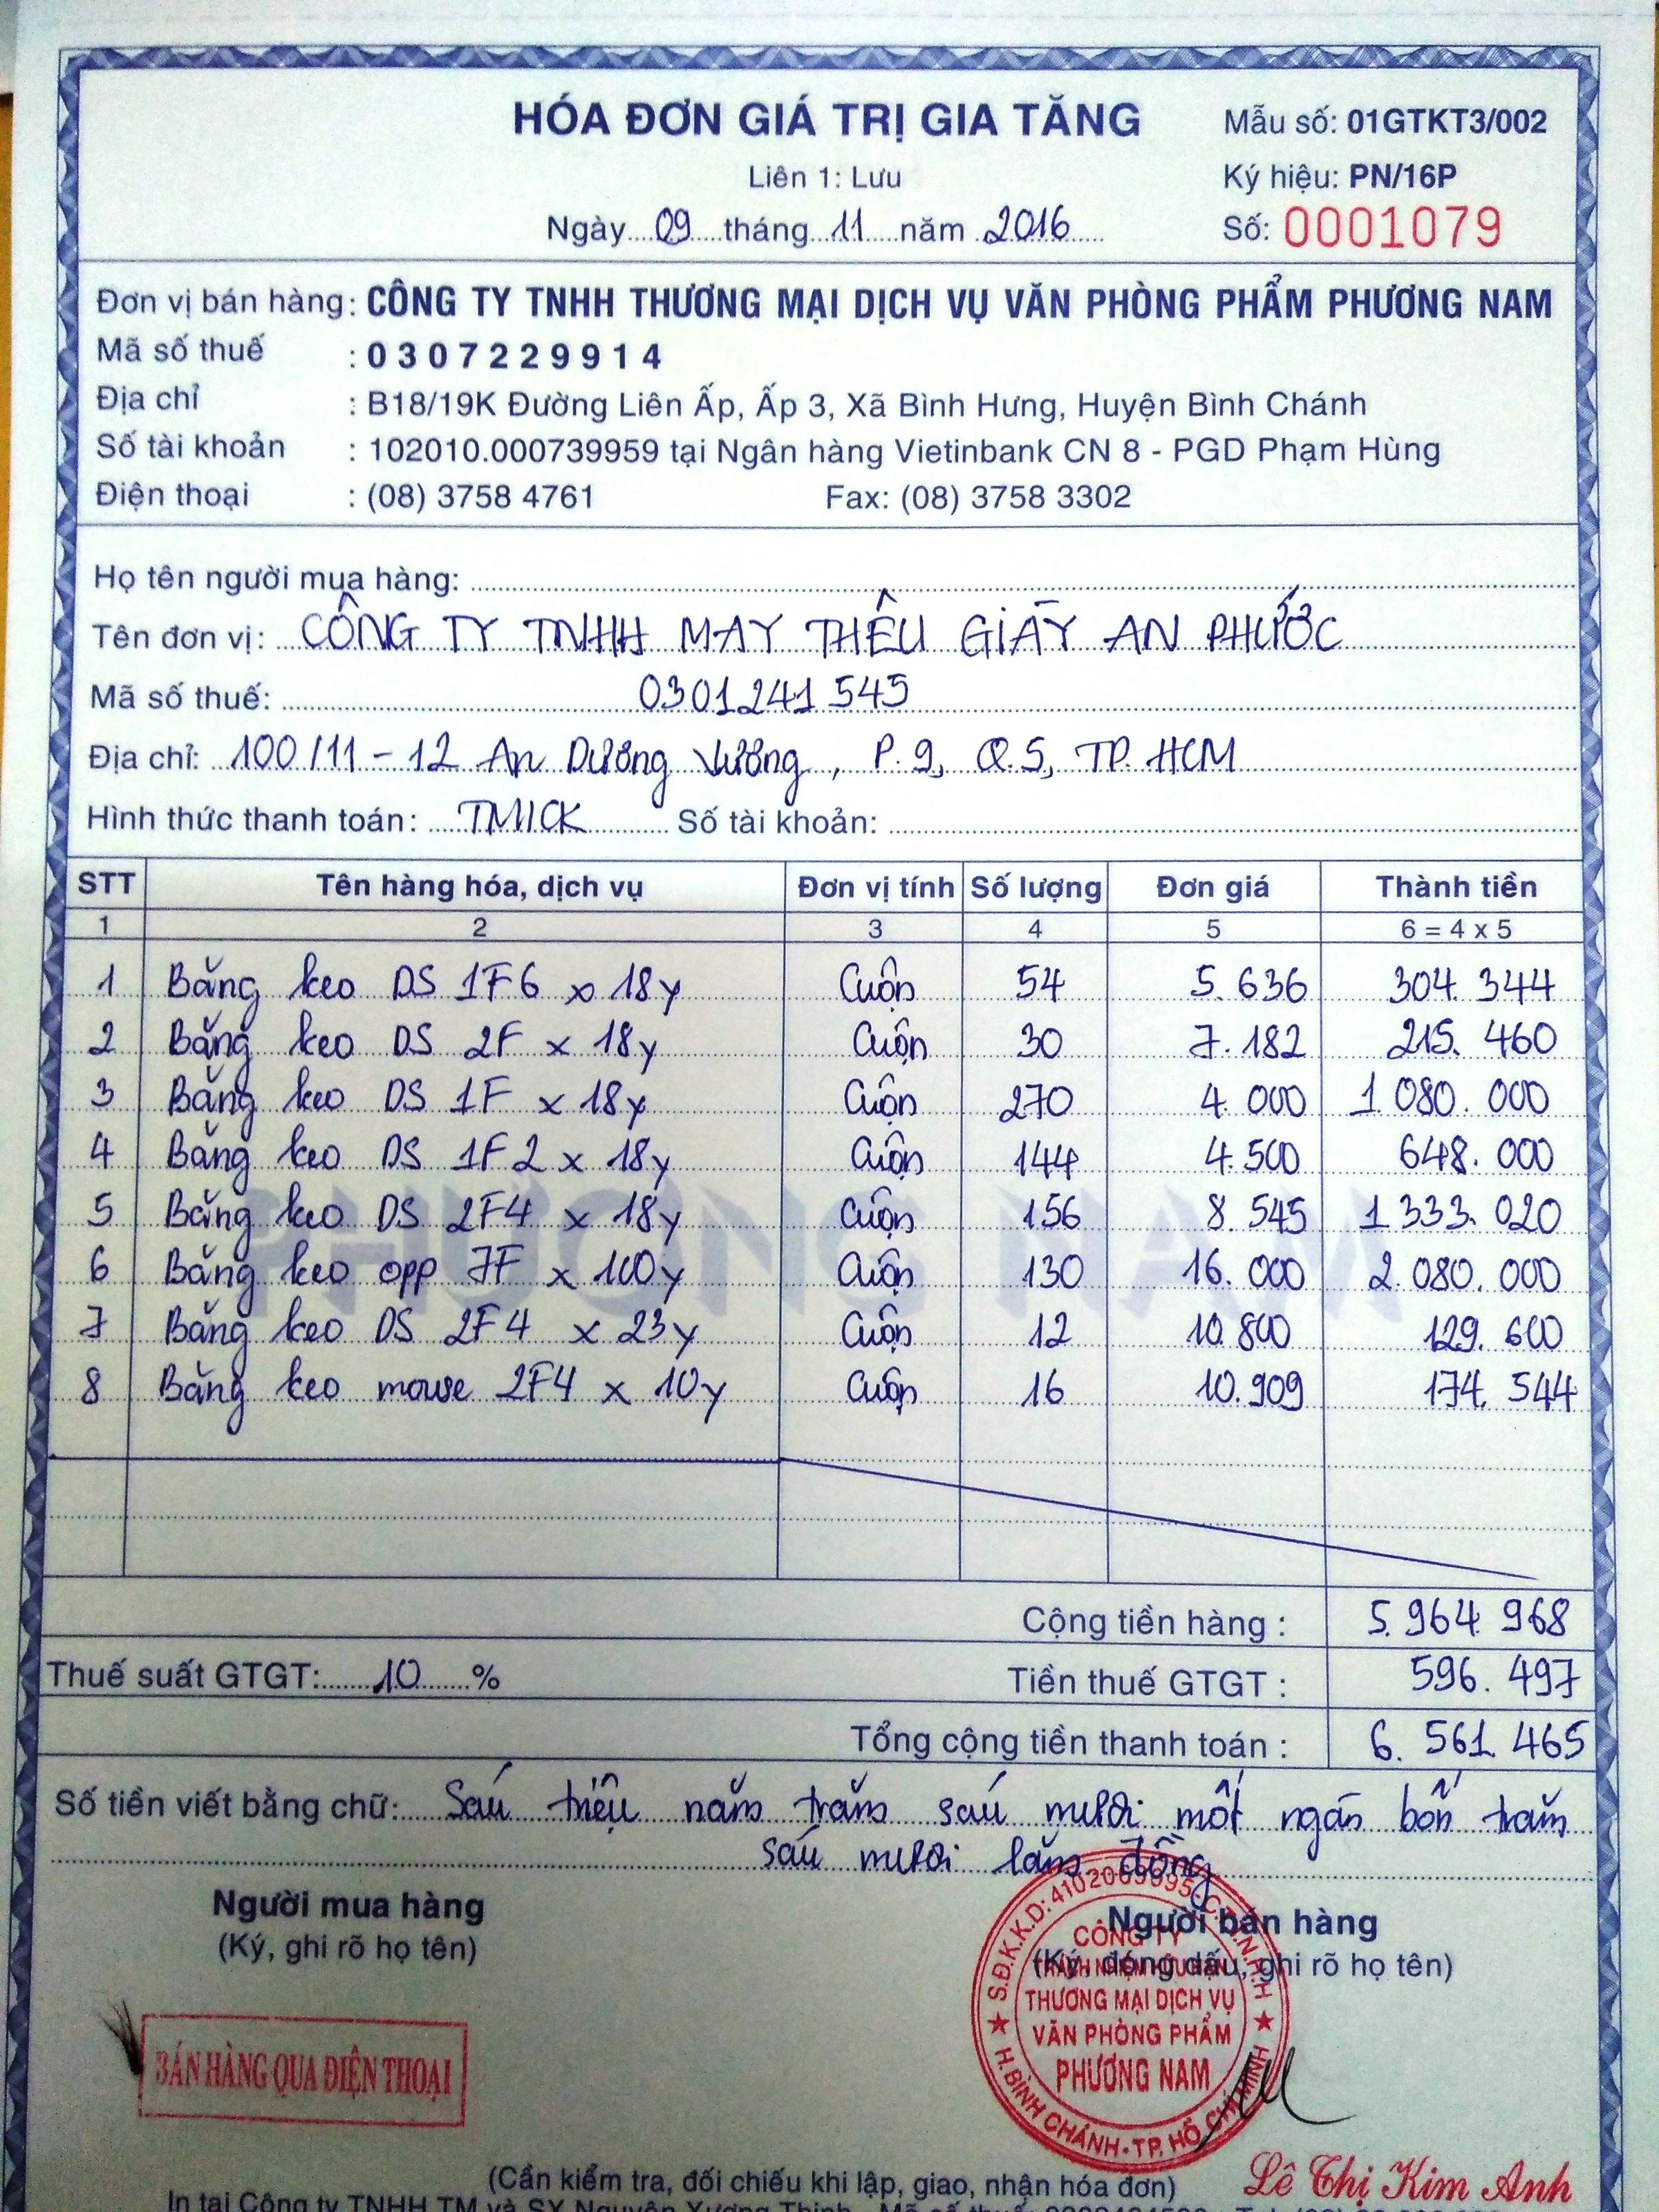 HÓA ĐƠN GIÁ TRỊ GIA TĂNG
Mẫu số: 01GTKT3/002
Liên 1: Lưu
Ký hiệu: PN/16P
Ngày 09 tháng 11 năm 2016
Số: 0001079
Đơn vị bán hàng: CÔNG TY TNHH THƯƠNG MẠI DỊCH VỤ VĂN PHÒNG PHẨM PHƯƠNG NAM
Mã số thuế : 0307229914
Địa chỉ : B18/19K Đường Liên Ấp, Ấp 3, Xã Bình Hưng, Huyện Bình Chánh
Số tài khoản : 102010.000739959 tại Ngân hàng Vietinbank CN 8 - PGD Phạm Hùng
Điện thoại : (08) 3758 4761 Fax: (08) 3758 3302
Họ tên người mua hàng:
Tên đơn vị: CÔNG TY TNHH MAY THÊU GIÀY AN PHƯỚC
Mã số thuế: 0301241545
Địa chỉ: 100/11-12 An Dương Vương, P.9, Q.5, TP. HCM
Hình thức thanh toán: TM/CK Số tài khoản:
STT Tên hàng hóa, dịch vụ Đơn vị tính Số lượng Đơn giá Thành tiền
1 2 3 4 5 6 = 4 x 5
1 Băng keo DS 1F6 x 18y Cuộn 54 5.636 304.344
2 Băng keo DS 2F x 18y Cuộn 30 7.182 215.460
3 Băng keo DS 1F x 18y Cuộn 270 4.000 1.080.000
4 Băng keo DS 1F2 x 18y Cuộn 144 4.500 648.000
5 Băng keo DS 2F4 x 18y Cuộn 156 8.545 1.333.020
6 Băng keo opp 7F x 100y Cuộn 130 16.000 2.080.000
7 Băng keo DS 2F4 x 23y Cuộn 12 10.800 129.600
8 Băng keo mouse 2F4 x 10y Cuộn 16 10.909 174.544
PHƯƠNG NAM
Cộng tiền hàng : 5.964.968
Thuế suất GTGT: 10 % Tiền thuế GTGT : 596.497
Tổng cộng tiền thanh toán : 6.561.465
Số tiền viết bằng chữ: Sáu triệu năm trăm sáu mươi mốt ngàn bốn trăm
sáu mươi lăm đồng
Người mua hàng
(Ký, ghi rõ họ tên)
Người bán hàng
(Ký, đóng dấu, ghi rõ họ tên)
BÁN HÀNG QUA ĐIỆN THOẠI
CÔNG TY
TRÁCH NHIỆM HỮU HẠN
THƯƠNG MẠI DỊCH VỤ
VĂN PHÒNG PHẨM
PHƯƠNG NAM
H.BÌNH CHÁNH-TP.HỒ CHÍ MINH
(Cần kiểm tra, đối chiếu khi lập, giao, nhận hóa đơn)
Lê Thị Kim Anh
In tại Công ty TNHH TM và SX Nguyên Xương Thịnh